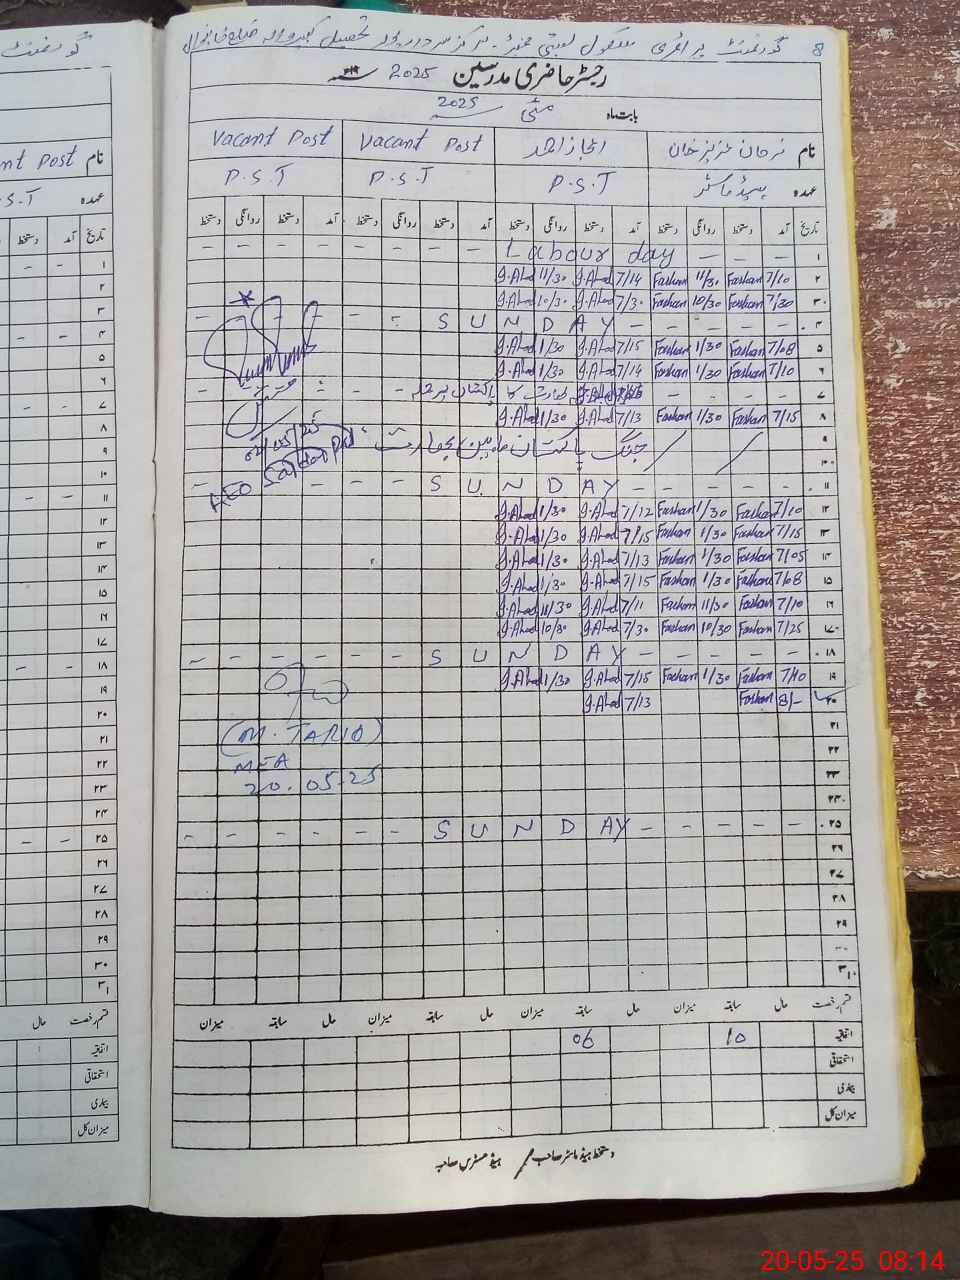 8 گورنمنٹ پرائمری سکول بستی تحصیل کبیروالہ ضلع خانیوال
رجسٹر حاضری مدرسین 2025
بابت ماہ مئی 2025
نام فرحان عزیز خان اعجاز احمد Vacant Post Vacant Post
عہدہ ہیڈ ماسٹر P.S.T P.S.T P.S.T
تاریخ آمد دستخط روانگی دستخط آمد دستخط روانگی دستخط آمد دستخط روانگی دستخط آمد دستخط روانگی دستخط
۱ Labour day
۲ 7/10 Farhan 11/30 Farhan 7/14 I.Ahad 11/30 I.Ahad
۳ 7/30 Farhan 10/30 Farhan 7/30 I.Ahad 10/30 I.Ahad
۴ SUNDAY
۵ 7/08 Farhan 1/30 Farhan 7/15 I.Ahad 1/30 I.Ahad
۶ 7/10 Farhan 1/30 Farhan 7/14 I.Ahad 1/30 I.Ahad
۷ بھارت کا پاکستان پر حملہ
۸ 7/15 Farhan 1/30 Farhan 7/13 I.Ahad 1/30 I.Ahad
۹ جنگ پاکستان مابین بھارت
۱۰
۱۱ SUNDAY
۱۲ 7/10 Farhan 1/30 Farhan 7/12 I.Ahad 1/30 I.Ahad
۱۳ 7/15 Farhan 1/30 Farhan 7/15 I.Ahad 1/30 I.Ahad
۱۴ 7/05 Farhan 1/30 Farhan 7/13 I.Ahad 1/30 I.Ahad
۱۵ 7/08 Farhan 1/30 Farhan 7/15 I.Ahad 1/30 I.Ahad
۱۶ 7/10 Farhan 11/30 Farhan 7/11 I.Ahad 11/30 I.Ahad
۱۷ 7/25 Farhan 10/30 Farhan 7/30 I.Ahad 10/30 I.Ahad
۱۸ SUNDAY
۱۹ 7/10 Farhan 1/30 Farhan 7/15 I.Ahad 1/30 I.Ahad
۲۰ 8/- Farhan 7/13 I.Ahad
۲۱
۲۲
۲۳
۲۴
۲۵ SUNDAY
۲۶
۲۷
۲۸
۲۹
۳۰
۳۱
AEO Sardar Pur
(M. TARIQ)
MEA
20.05.25
قسم رخصت حال سابقہ میزان حال سابقہ میزان حال سابقہ میزان حال سابقہ میزان
اتفاقیہ 10 06
استحقاقی
بیماری
میزان کل
دستخط ہیڈ ماسٹر صاحب ہیڈ مسٹرس صاحبہ
گورنمنٹ
نام nt Post
عہدہ S.T
تاریخ آمد دستخط
۱
۲
۳
۴
۵
۶
۷
۸
۹
۱۰
۱۱
۱۲
۱۳
۱۴
۱۵
۱۶
۱۷
۱۸
۱۹
۲۰
۲۱
۲۲
۲۳
۲۴
۲۵
۲۶
۲۷
۲۸
۲۹
۳۰
۳۱
قسم رخصت حال
اتفاقیہ
استحقاقی
بیماری
میزان کل
20-05-25 08:14